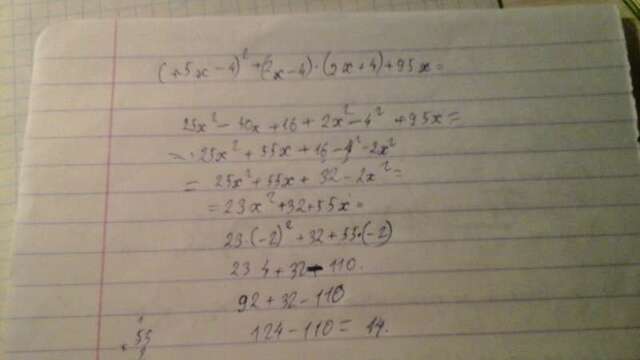 (+5x-4)²+(2x-4)·(2x+4)+95x=
25x²-40x+16+2x²-4²+95x=
=25x²+55x+16-4²-2x²
=25x²+55x+32-2x²=
=23x²+32+55x=
23·(-2)²+32+55·(-2)
23 4+32-110.
92+32-110
124-110=14.
55